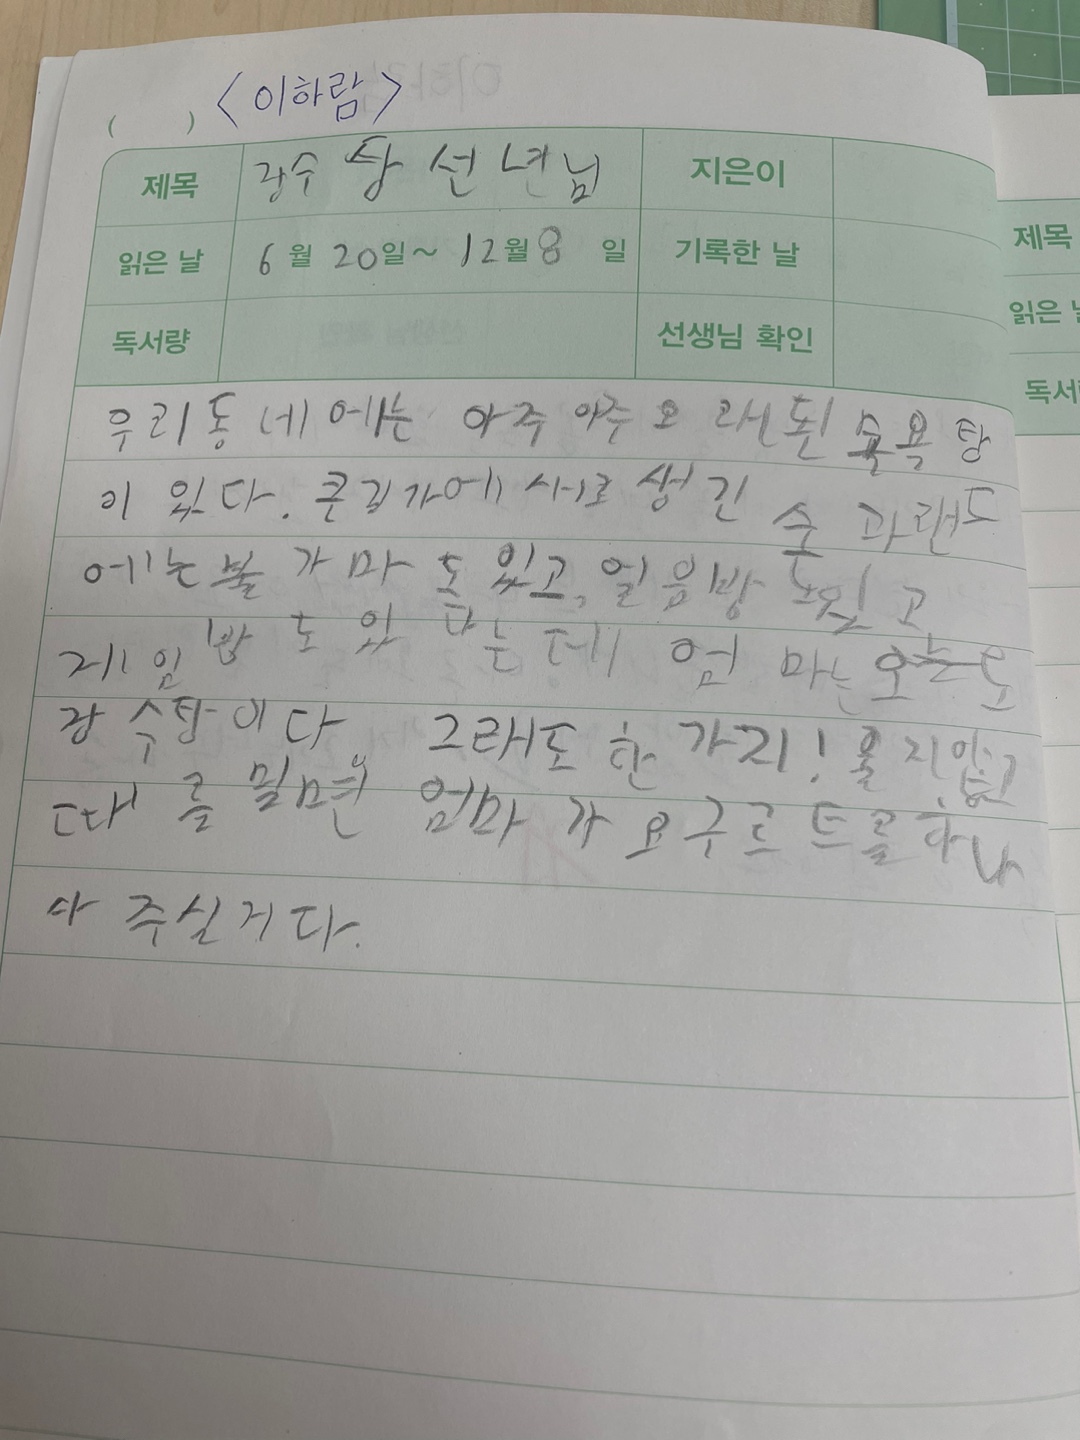 < 이하람 >
( )
제목 장수 탕 선 년 님 지은이
읽은 날 6 월 20 일 ~ 12 월 8 일 기록한 날
독서량 선생님 확인
우리 동 네 에는 아주 아주 오 래 된 목욕 탕
이 있다. 큰 길가에 새로 생 긴 숯 과랜드
에는 불 가 마 도 있고, 얼 음 방 도있 고
게 임 방 도 있 다 는 데 엄 마는 오 늘 도
장 수탕 이 다. 그래도 한 가지! 울 지 않고
때 를 밀면 엄마 가 요 구르 트 를 하 나
사 주실거다.
제목
읽은
독서